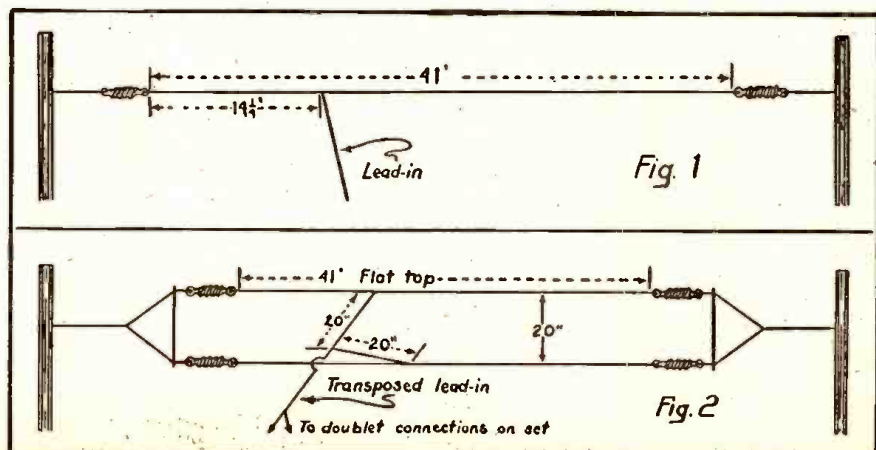 41'
14¼'
Lead-in
Fig. 1
41' Flat top
20"
20"
20"
Transposed lead-in
Fig. 2
To doublet connections on set